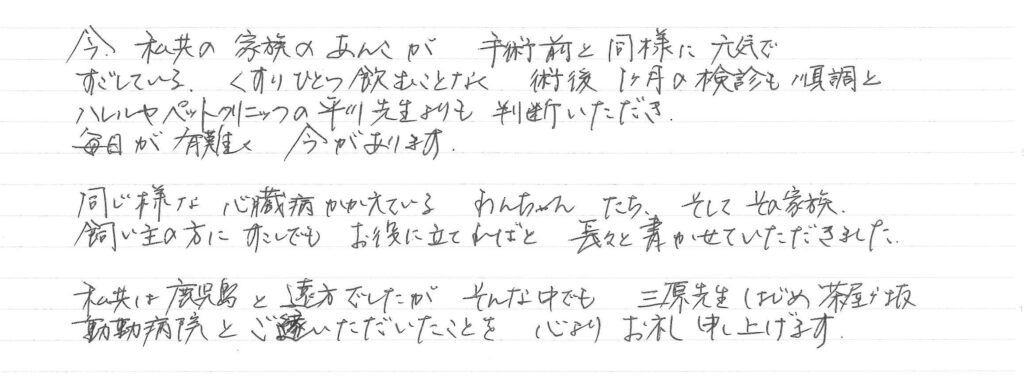 今、私共の 家族の あんこが 手術前と同様に 元気で
すごしている。くすりひとつ飲むことなく 術後 1ヶ月の検診も順調と
ハレルヤペットクリニックの平川先生よりも 判断いただき、
毎日が 有難く 今があります。
同じ様な 心臓病かかえている わんちゃん たち、そして その家族、
飼い主の方に すこしでも お役に立てればと 長々と書かせていただきました。
私共は 鹿児島と 遠方でしたが そんな中でも 三原先生はじめ 茶屋ヶ坂
動動病院と ご縁いただいたことを 心より お礼 申し上げます。